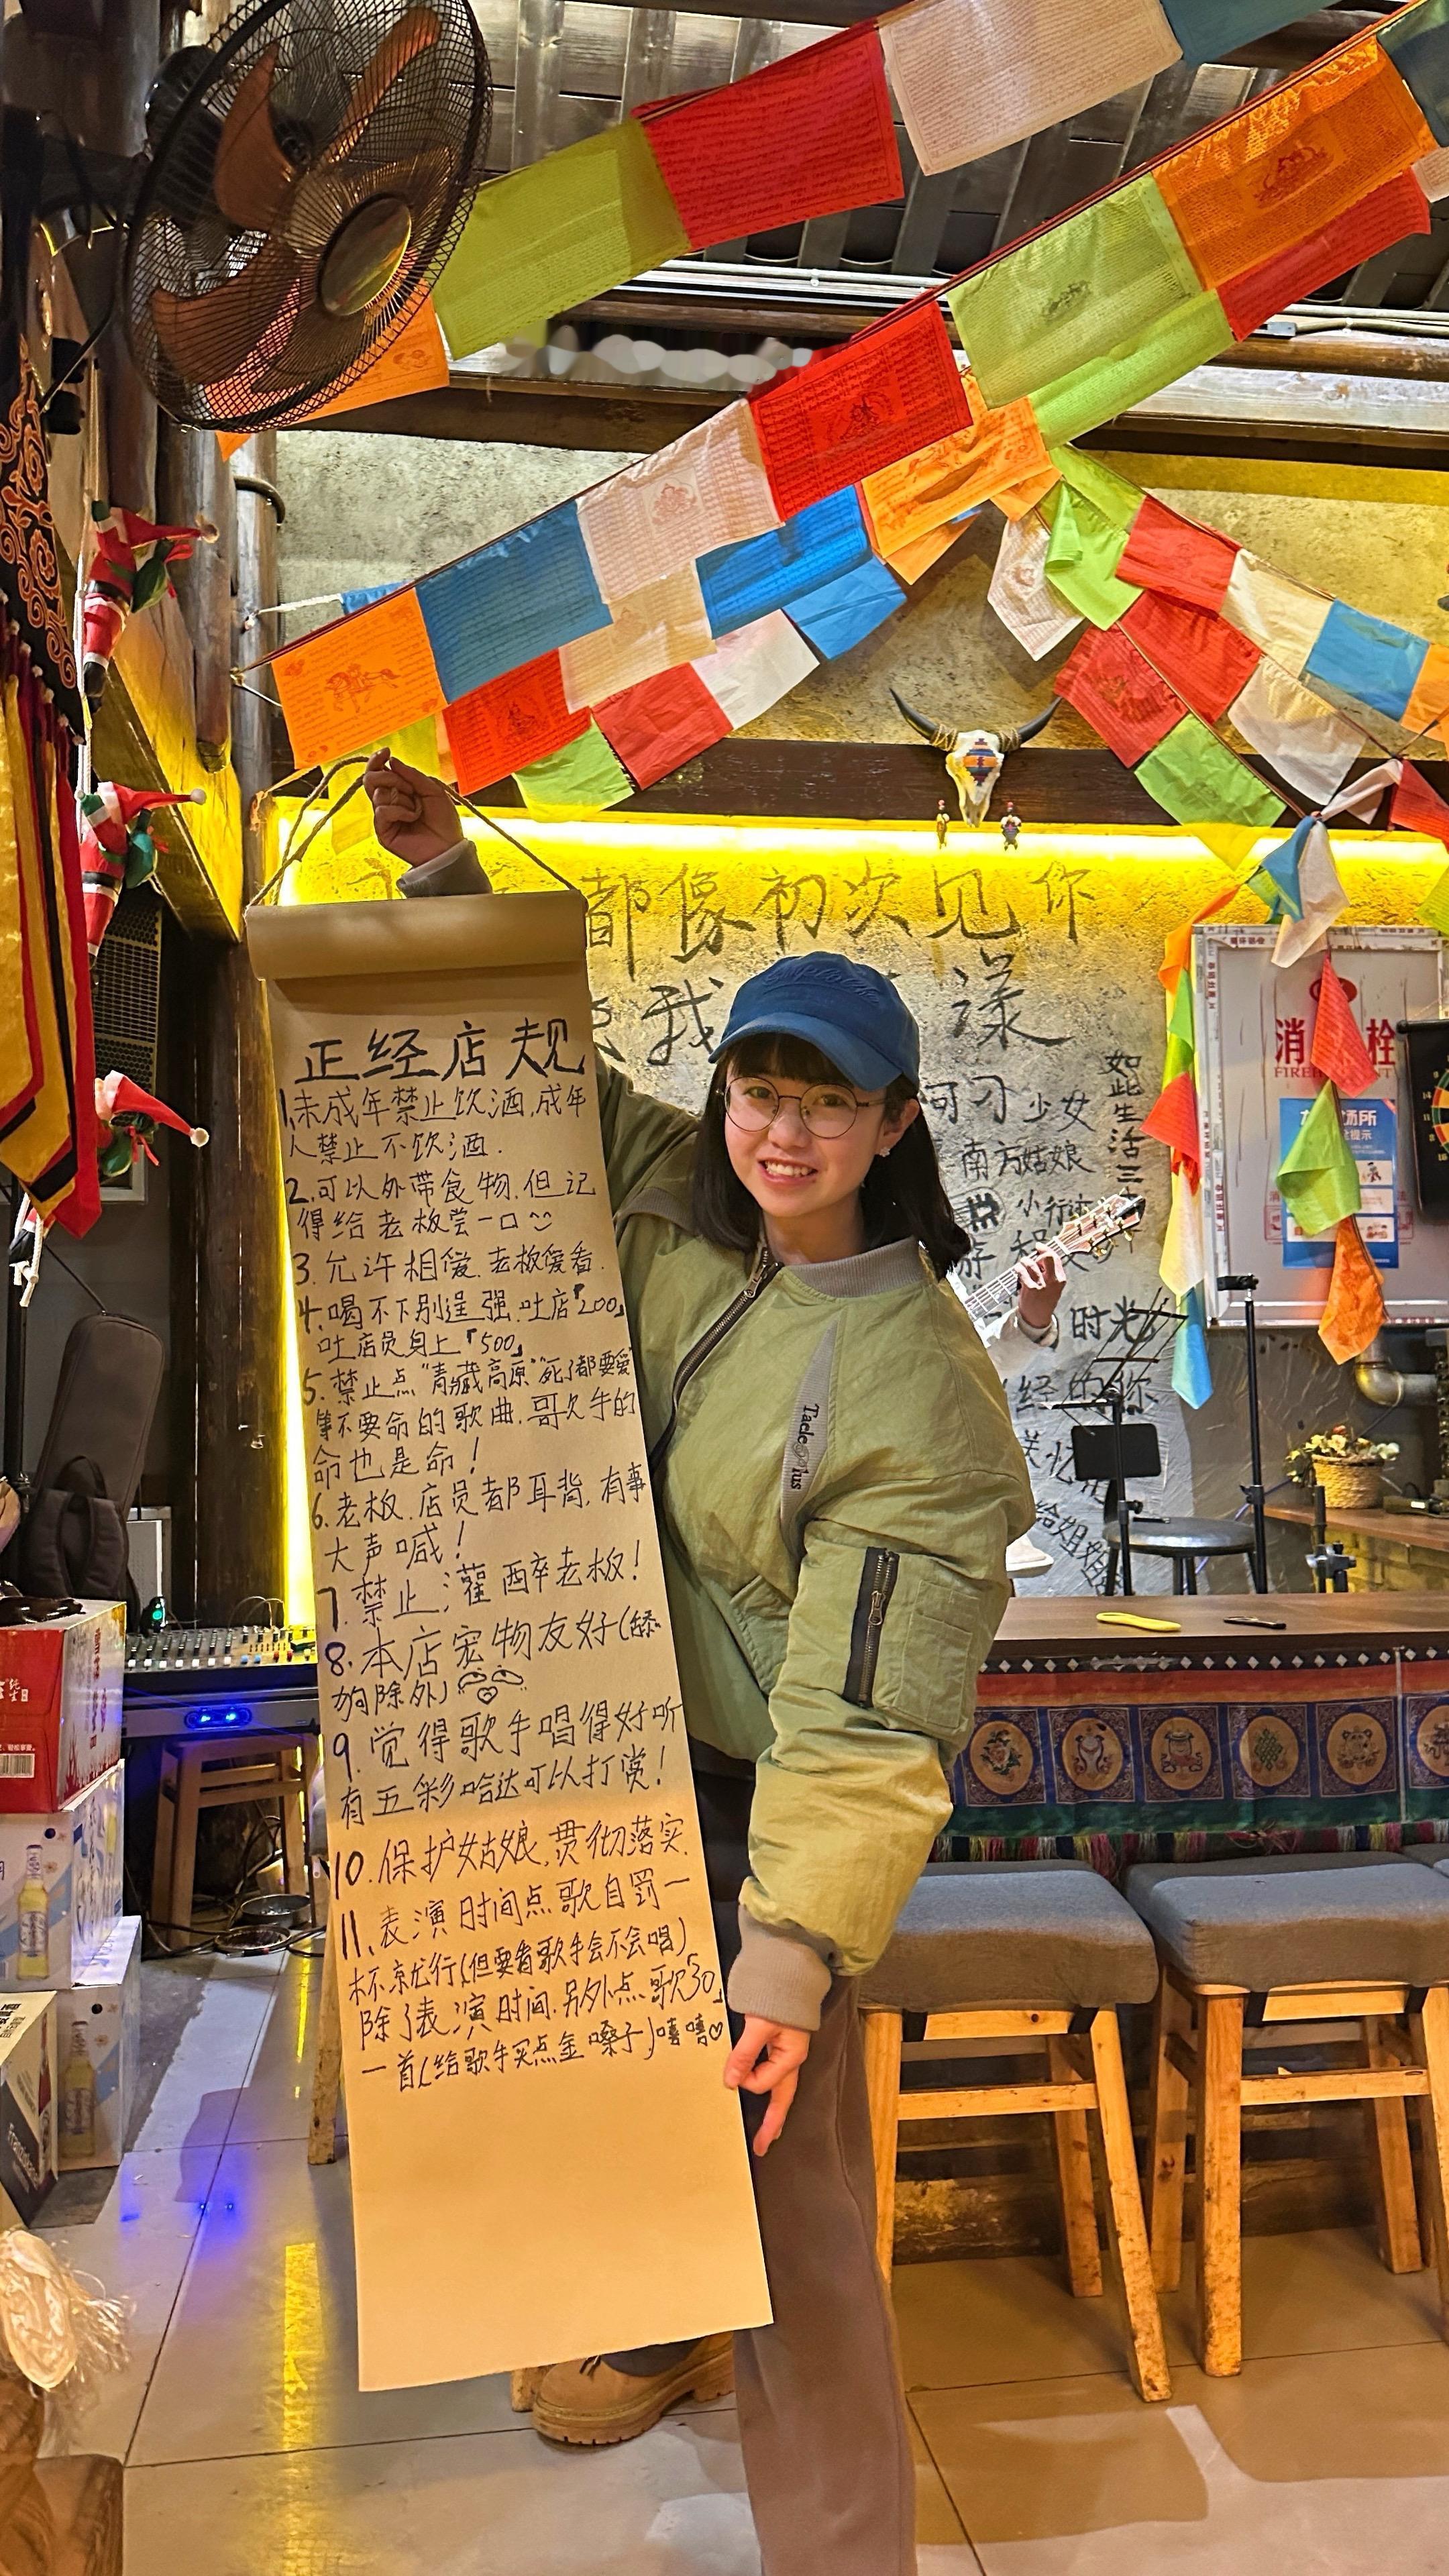 正经店规
1.未成年禁止饮酒,成年
人禁止不饮酒.
2.可以外带食物.但记
得给老板尝一口
3.允许相爱.老板爱看.
4.喝不下别逞强.吐店『200』
吐店员身上『500』
5.禁止点“青藏高原”“死了都要爱”
等不要命的歌曲.哥欠手的
命也是命!
6.老板.店员都耳背,有事
大声喊!
7.禁止灌醉老板!
8.本店宠物友好(舔
狗除外)
9.觉得歌手唱得好听
有五彩哈达可以打赏!
10.保护姑娘,贯彻落实.
11、表演时间点歌自罚一
杯就行(但要看歌手会不会唱)
除了表演时间.另外点歌『30』
一首(给歌手买点金嗓子)嘻嘻♡
都像初次见你
我
漾
阿刁 少女
南方姑娘
小行
如此生活三
时光
经的你
给姐姐
Tacle Plus
消 栓
FIRE
场所
提示